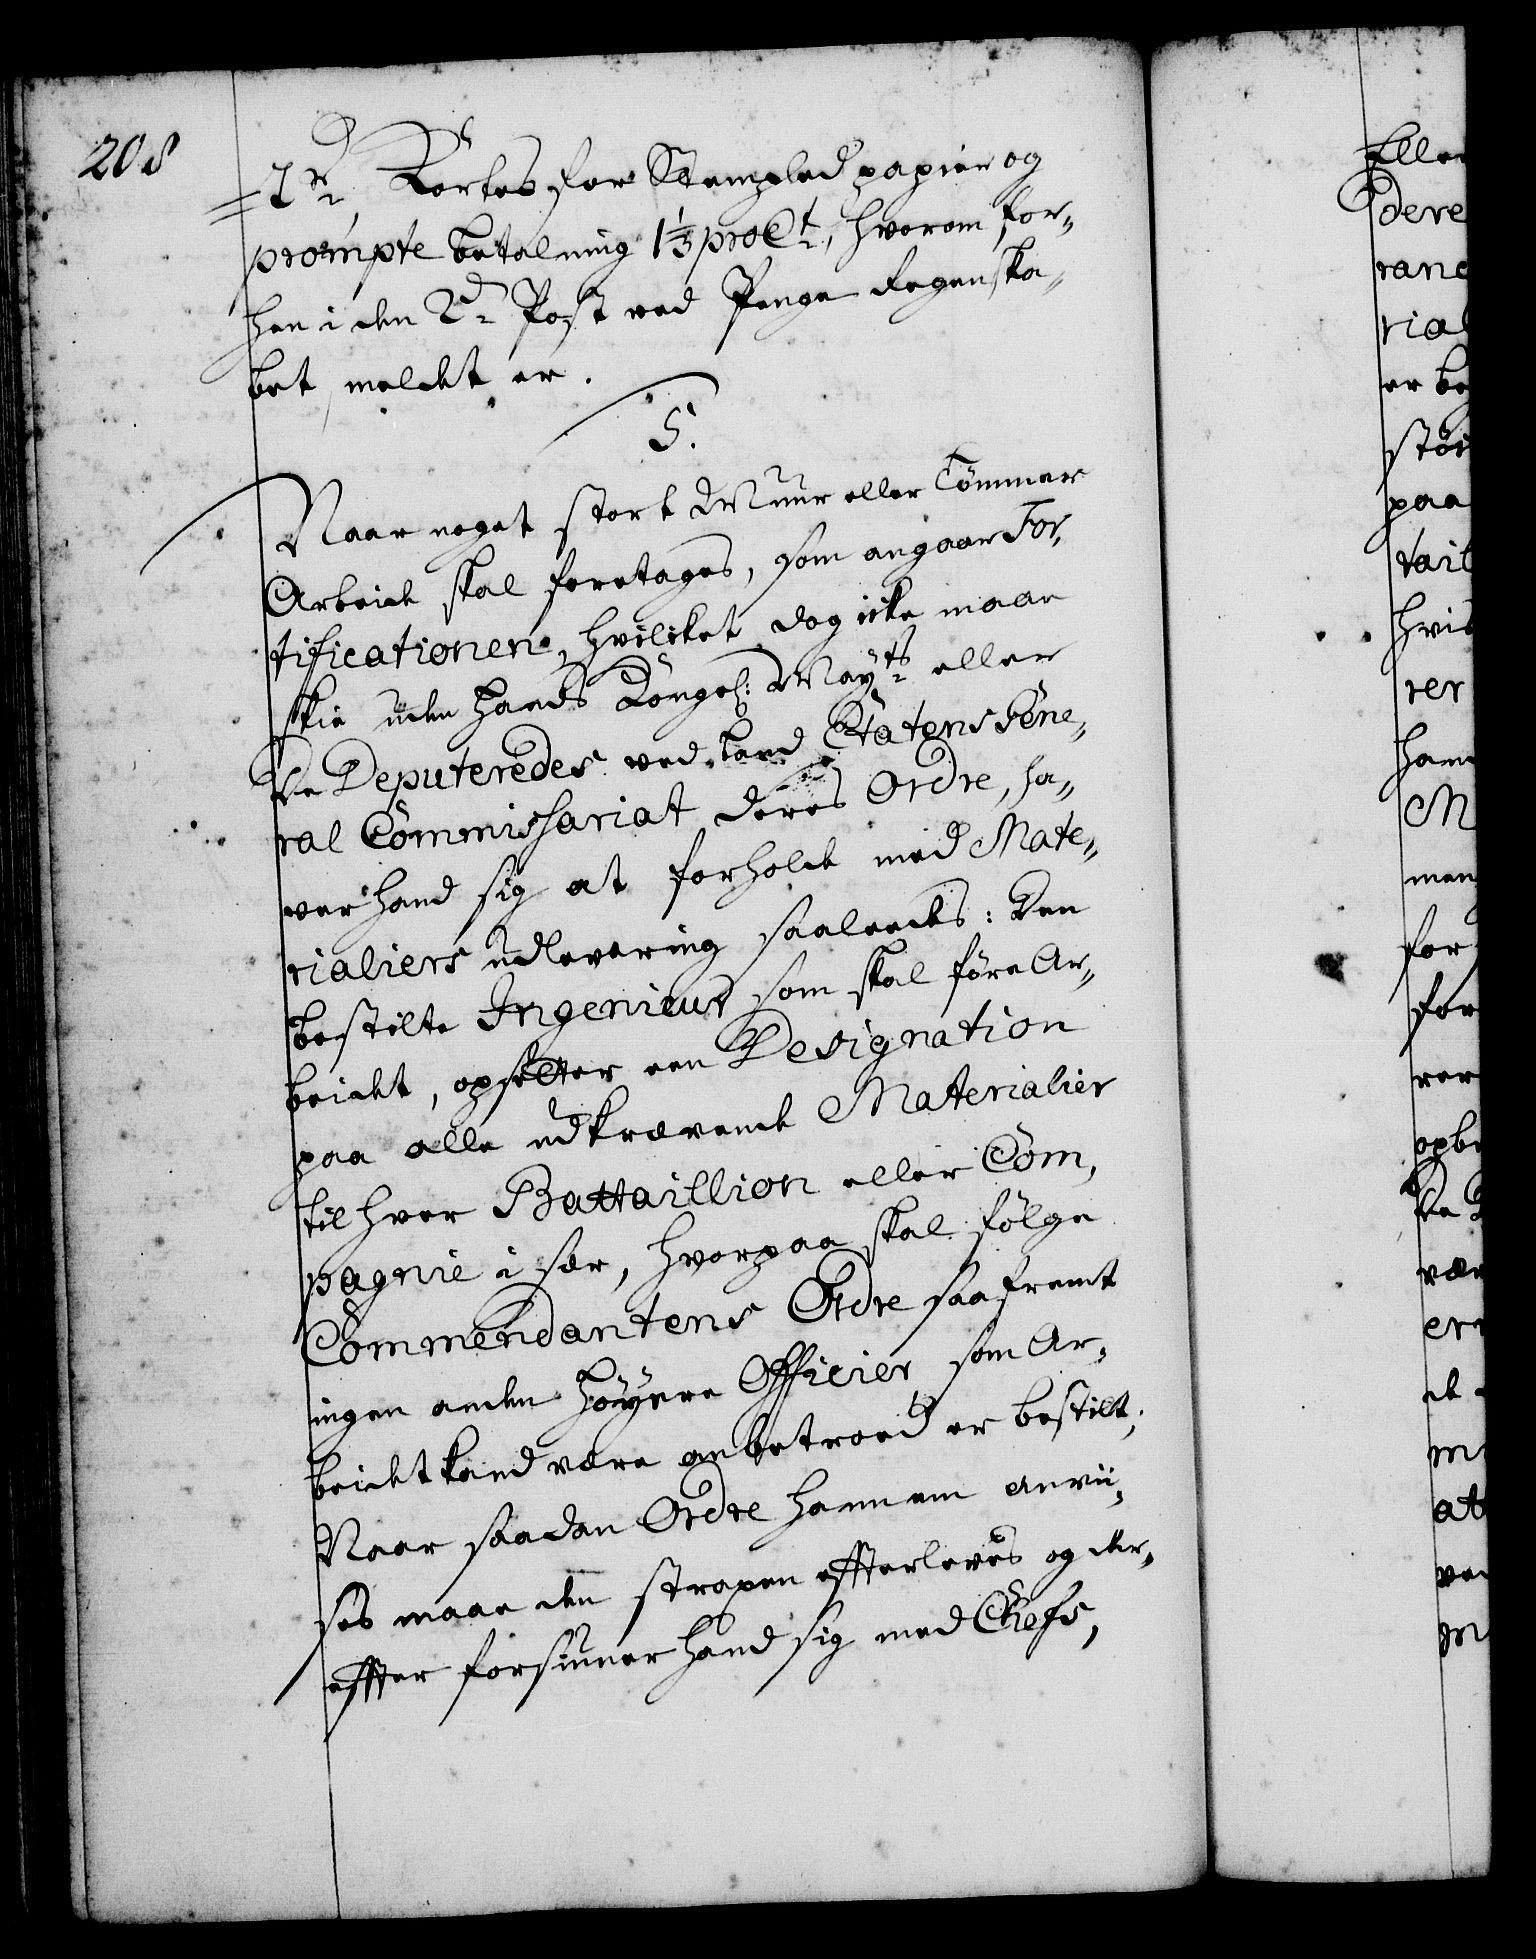 208
=1 R. Kortes for Stempled papier og
prompte betalning 1⅓ pro Ct., hvorom for„
hen i den 2den Post ved Penge Regenska„
bet meldet er.
5.
Naar noget stort Muur eller Tömmer
Arbeide skal foretages, som angaar For„
tificationen, hvilcket dog icke maae
skie uden Hands Kongel: Mayts eller
De Deputeredes ved Land Etatens Gene„
ral Commissariat deres Ordre, ha„
ver hand sig at forholde med Mate„
rialiers udlevering saaledes: Den
bestilte Ingenieur som skal före Ar„
beidet, opsetter een Designation
paa alle udkrævende Materialier
til hver Battaillion eller Com„
pagnie i sær, hvorpaa skal fölge
Commendantens Ordre saafremt
ingen anden höyere Officier som Ar„
beidet kand være anbetroed er bestilt;
Naar saadan Ordre hannem anvii„
ses maae den strapen effterleves og der„
effter forsiuner hand sig med Chefs,
Eller
dere
rane
rial
er be
stör
paa
tail
hvis
rer
ham
M
men
for
for
rer
opbe
De
vær
er
de
m
at
ved
m